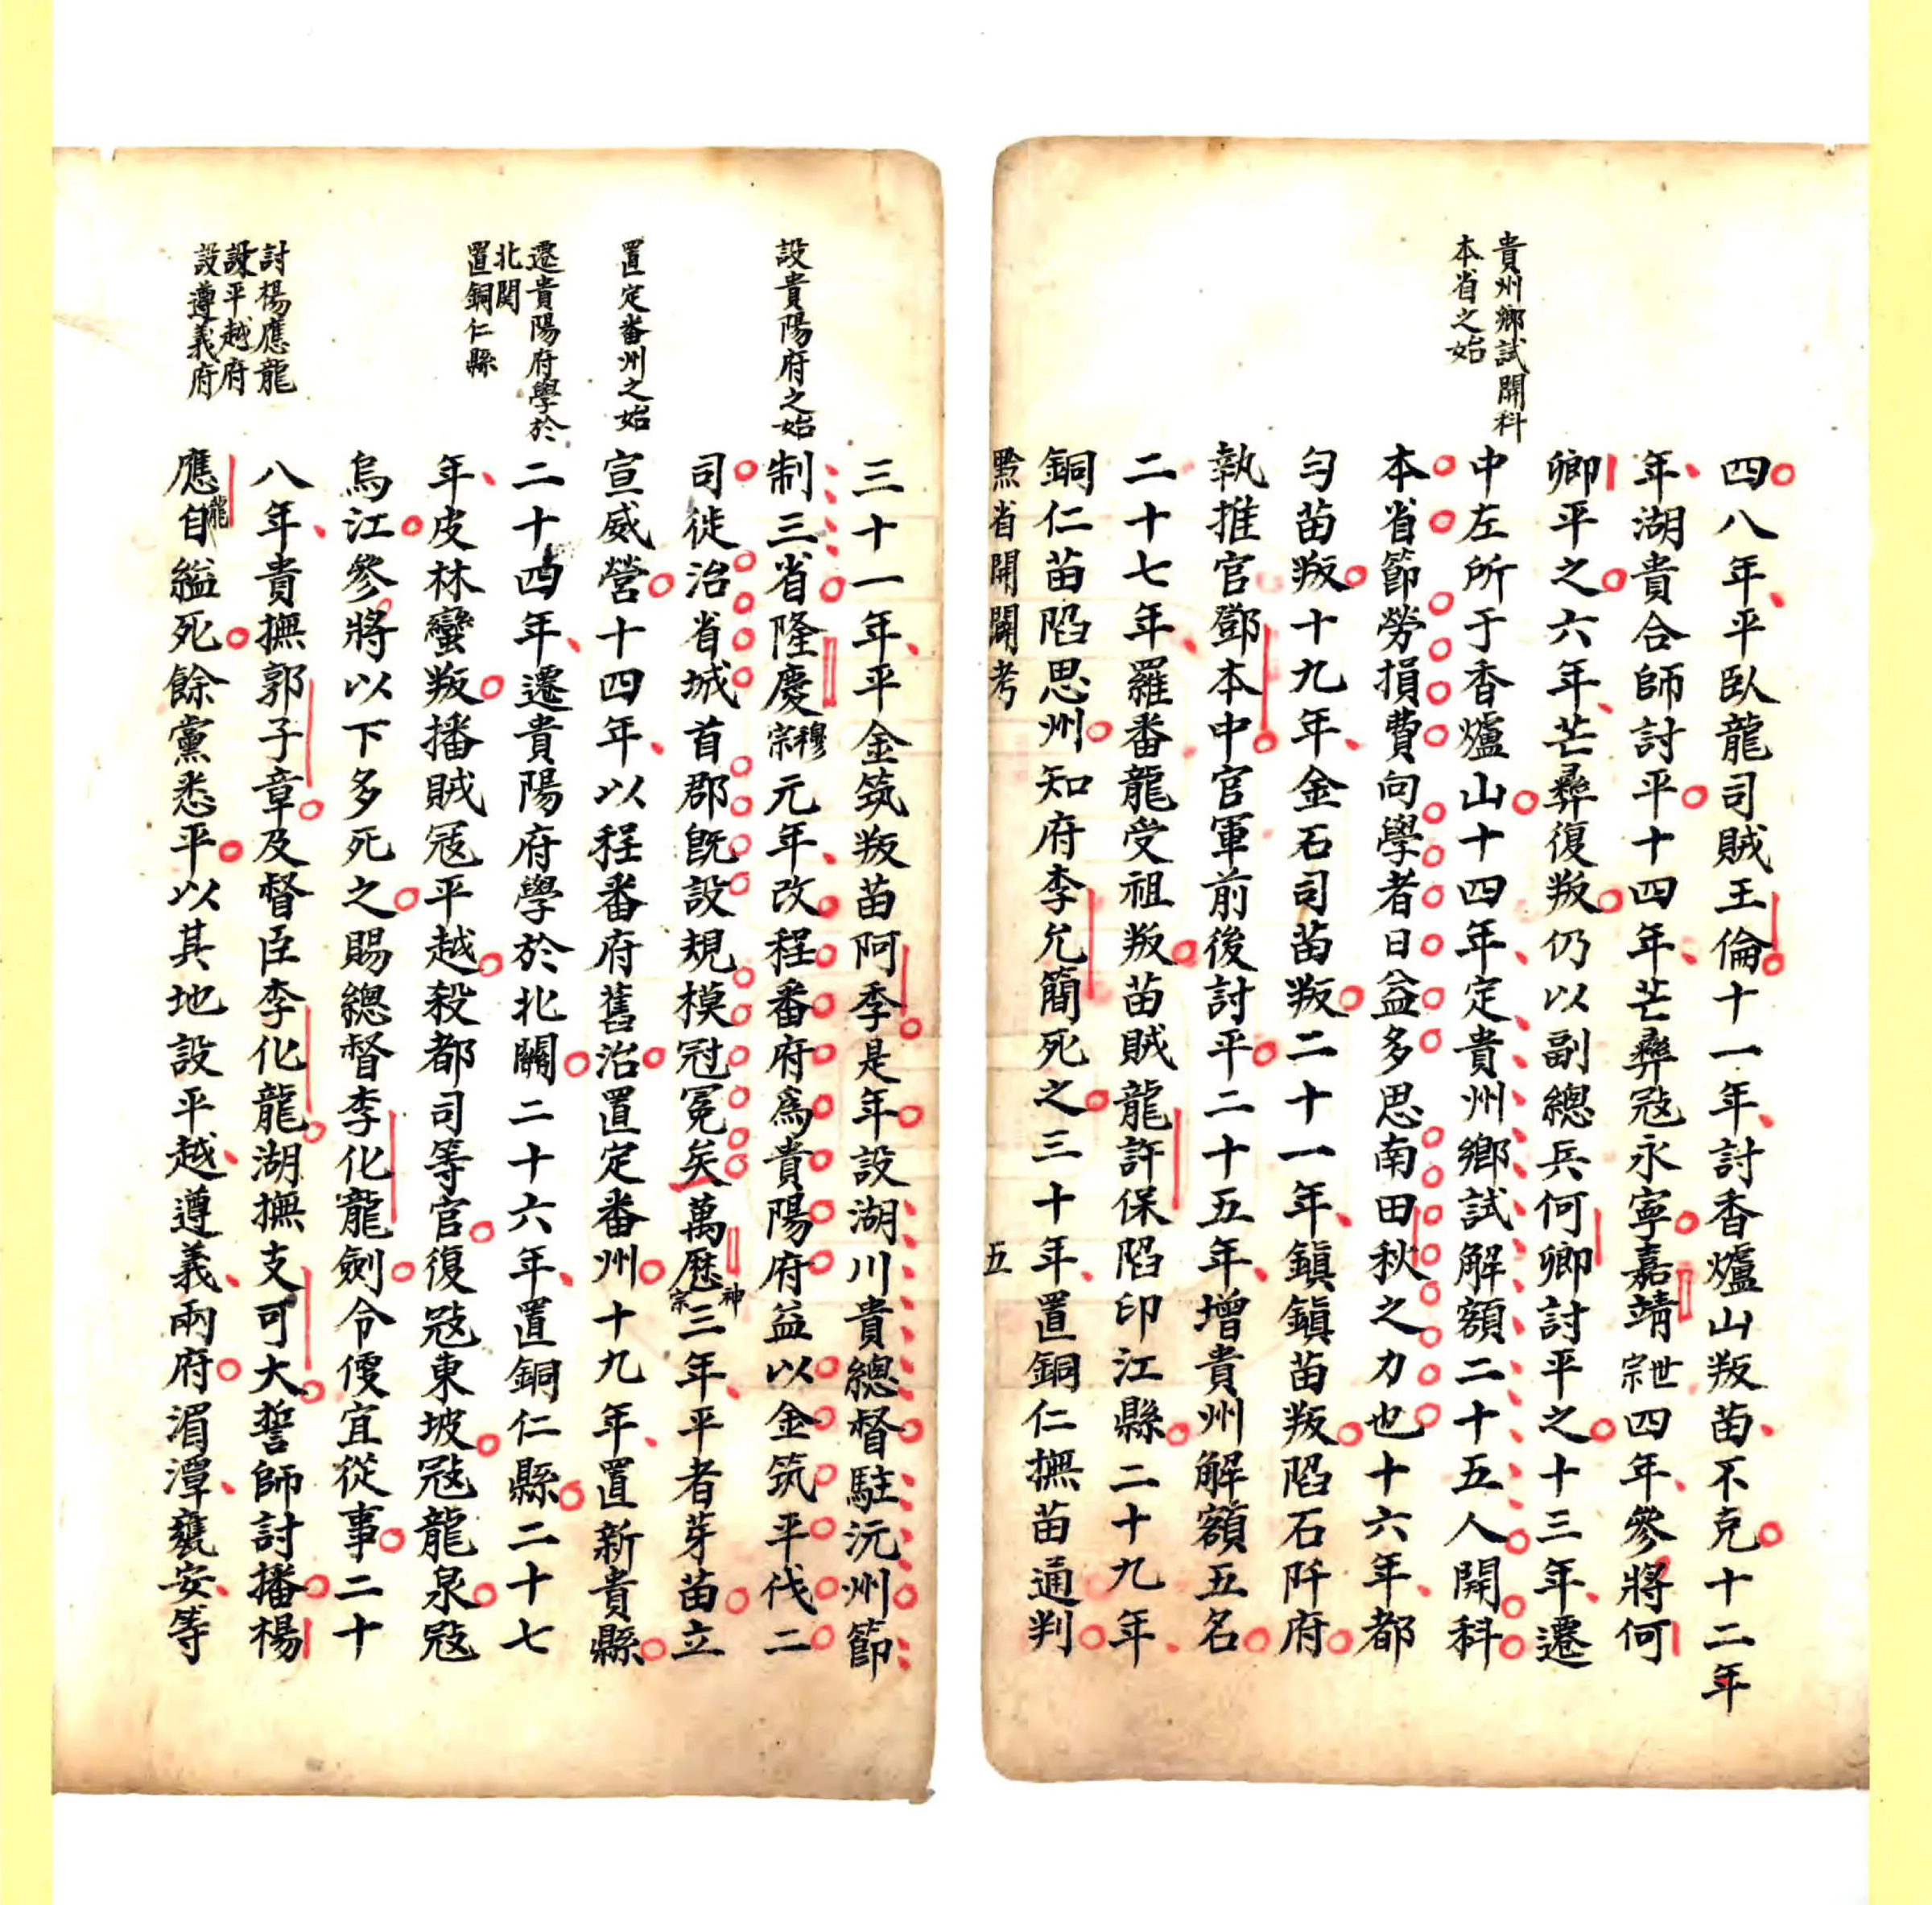 貴州鄉試開科
本省之始
四八年平臥龍司賊王倫十一年討香爐山叛苗不克十二年
年湖貴合師討平十四年芒彝寇永寧嘉靖世宗四年參將何
卿平之六年芒彝復叛仍以副總兵何卿討平之十三年遷
中左所于香爐山十四年定貴州鄉試解額二十五人開科
本省節勞損費向學者日益多思南田秋之力也十六年都
勻苗叛十九年金石司苗叛二十一年鎮鎮苗叛陷石阡府
執推官鄧本中官軍前後討平二十五年增貴州解額五名
二十七年羅番龍受祖叛苗賊龍許保陷印江縣二十九年
銅仁苗陷思州知府李允簡死之三十年置銅仁撫苗通判
黔省開闢考
五
設貴陽府之始
置定番州之始
遷貴陽府學於
北関
置銅仁縣
討楊應龍
設平越府
設遵義府
三十一年平金筑叛苗阿季是年設湖川貴總督駐沅州節
制三省隆慶穆宗元年改程番府為貴陽府益以金筑平伐二
司徙治省城首郡既設規模冠冕矣萬歷神宗三年平者芽苗立
宣威營十四年以程番府舊治置定番州十九年置新貴縣
二十四年遷貴陽府學於北關二十六年置銅仁縣二十七
年皮林蠻叛播賊寇平越殺都司等官復寇東坡寇龍泉寇
烏江參將以下多死之賜總督李化龍劍令便宜從事二十
八年貴撫郭子章及督臣李化龍湖撫支可大誓師討播楊
應龍自縊死餘黨悉平以其地設平越遵義兩府湄潭甕安等